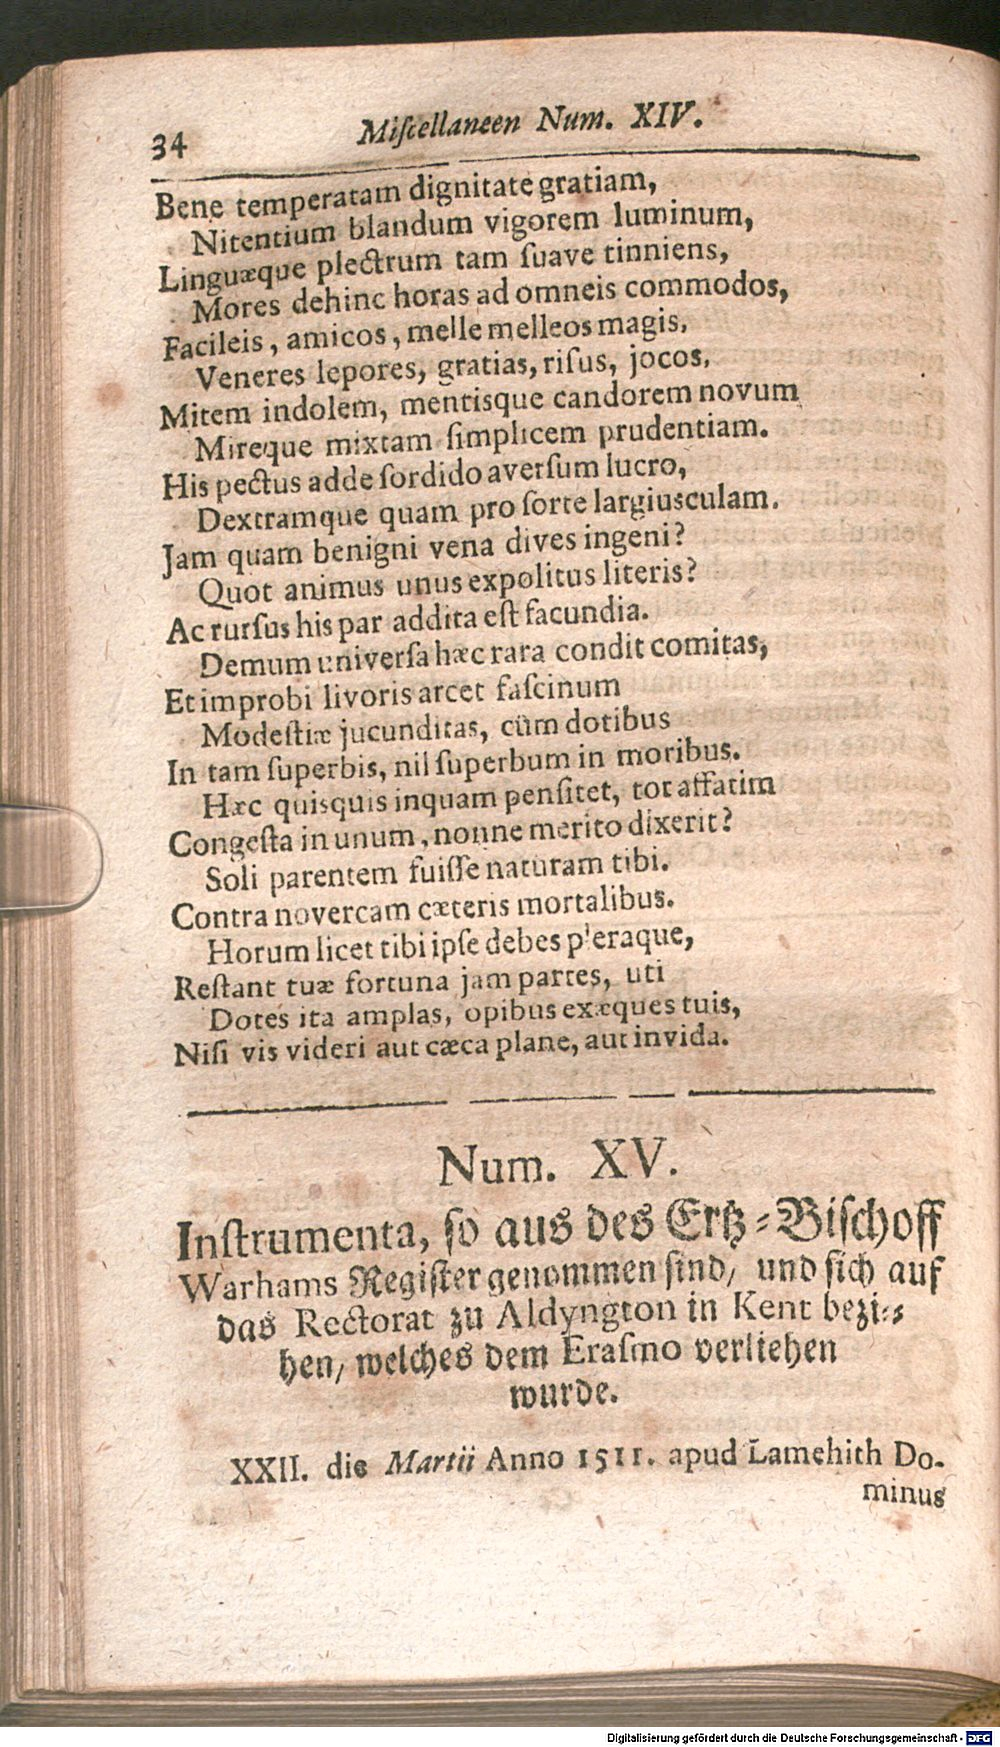 34
Miſcellaneen Num. XIV.
Bene temperatam dignitate gratiam,
Nitentium blandum vigorem luminum,
Linguæque plectrum tam ſuave tinniens,
Mores dehinc horas ad omneis commodos,
Facileis, amicos, melle melleos magis.
Veneres lepores, gratias, riſus, jocos,
Mitem indolem, mentisque candorem novum
Mireque mixtam ſimplicem prudentiam.
His pectus adde ſordido averſum lucro,
Dextramque quam pro ſorte largiusculam.
Jam quam benigni vena dives ingeni?
Quot animus unus expolitus literis?
Ac rurſus his par addita eſt facundia.
Demum univerſa hæc rara condit comitas,
Et improbi livoris arcet faſcinum
Modeſtiæ jucunditas, cūm dotibus
In tam ſuperbis, nil ſuperbum in moribus.
Hæc quisquis inquam penſitet, tot affatim
Congeſta in unum, nonne merito dixerit?
Soli parentem fuiſſe naturam tibi.
Contra novercam cæteris mortalibus.
Horum licet tibi ipſe debes pleraque,
Reſtant tuæ fortuna jam partes, uti
Dotes ita amplas, opibus exæques tuis,
Niſi vis videri aut cæca plane, aut invida.
Num. XV.
Inſtrumenta, ſo aus des Ertz-Biſchoff
Warhams Regiſter genommen ſind/ und ſich auf
das Rectorat zu Aldyngton in Kent bezi-
hen/ welches dem Eraſmo verliehen
wurde.
XXII. die Martii Anno 1511. apud Lamehith Do-
minus
Digitalisierung gefördert durch die Deutsche Forschungsgemeinschaft - DFG